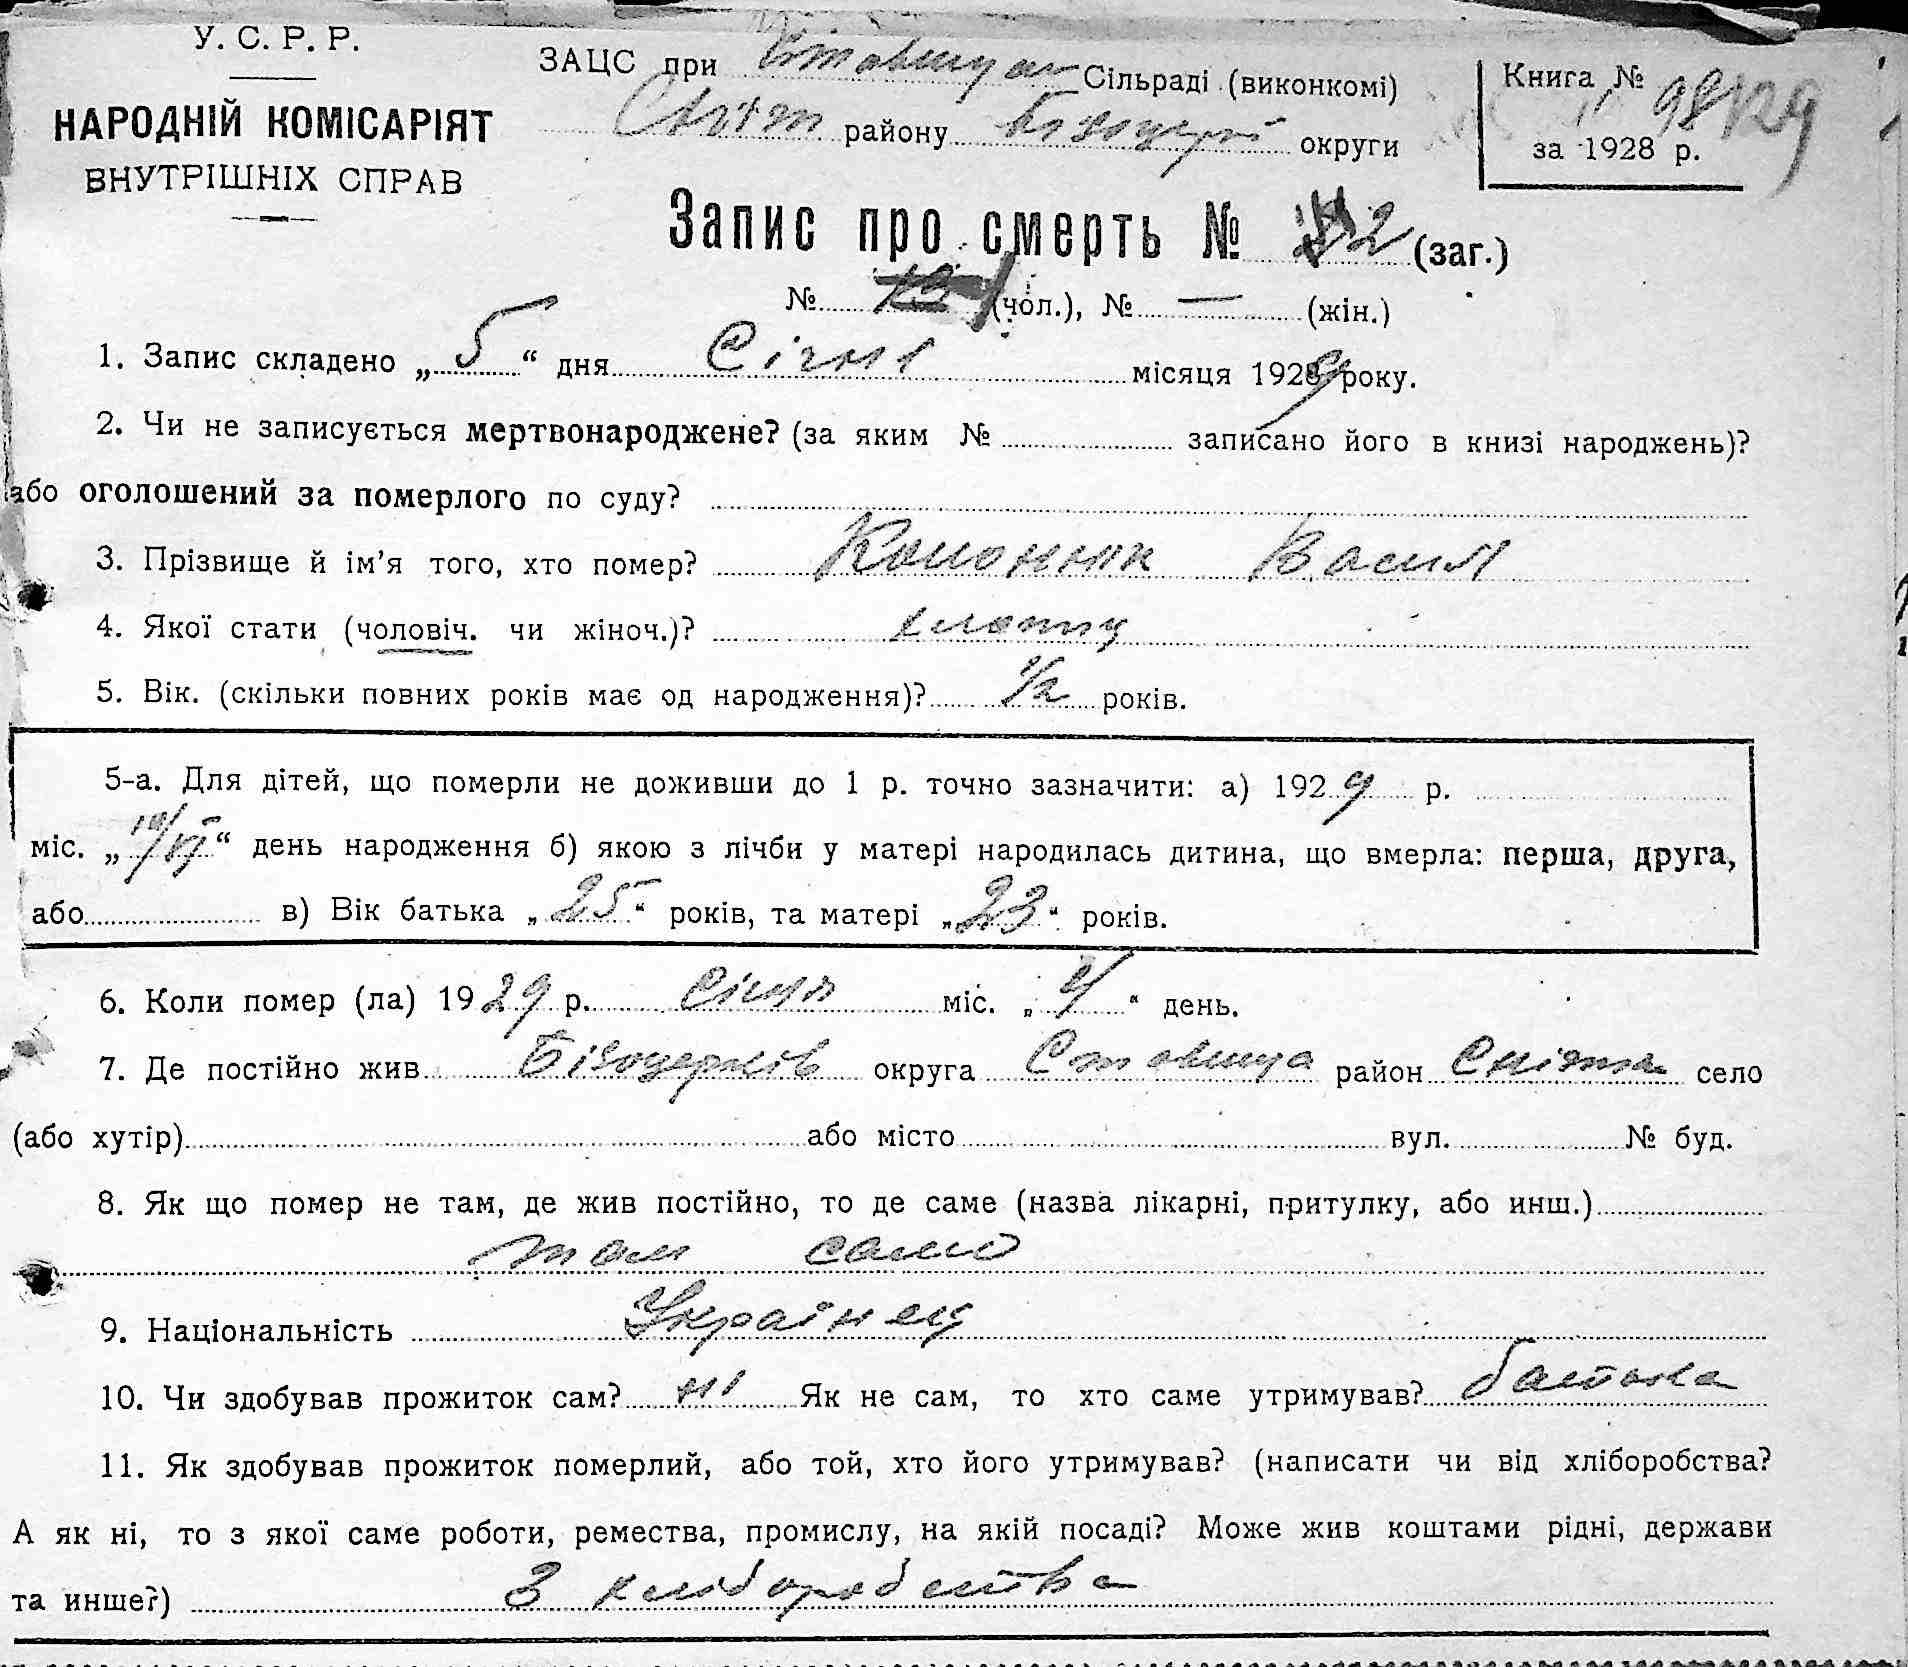 У. С. Р. Р.
НАРОДНІЙ КОМІСАРІЯТ
ВНУТРІШНІХ СПРАВ
ЗАЦС при Сільраді (виконкомі)
району округи
Книга №
за 1928 р.
Запис про смерть № 2 (заг.)
№ (чол.), № — (жін.)
1. Запис складено „ 5 “ дня Січня місяця 1929 року.
2. Чи не записується мертвонароджене? (за яким № записано його в книзі народжень)?
або оголошений за померлого по суду?
3. Прізвище й ім’я того, хто помер? Кононюк Васил
4. Якої стати (чоловіч. чи жіноч.)? хлопец
5. Вік. (скільки повних років має од народження)? 1/2 років.
5-а. Для дітей, що померли не доживши до 1 р. точно зазначити: а) 1929 р.
міс. „ “ день народження б) якою з лічби у матері народилась дитина, що вмерла: перша, друга,
або в) Вік батька „ 25 “ років, та матері „ 23 “ років.
6. Коли помер (ла) 1929 р. Січня міс. „ 4 “ день.
7. Де постійно жив Білоцерків округа Ставища район село
(або хутір) або місто вул. № буд.
8. Як що помер не там, де жив постійно, то де саме (назва лікарні, притулку, або инш.)
там само
9. Національність Українец
10. Чи здобував прожиток сам? ні Як не сам, то хто саме утримував? батько
11. Як здобував прожиток померлий, або той, хто його утримував? (написати чи від хліборобства?
А як ні, то з якої саме роботи, ремества, промислу, на якій посаді? Може жив коштами рідні, держави
та инше?) З хліборобства